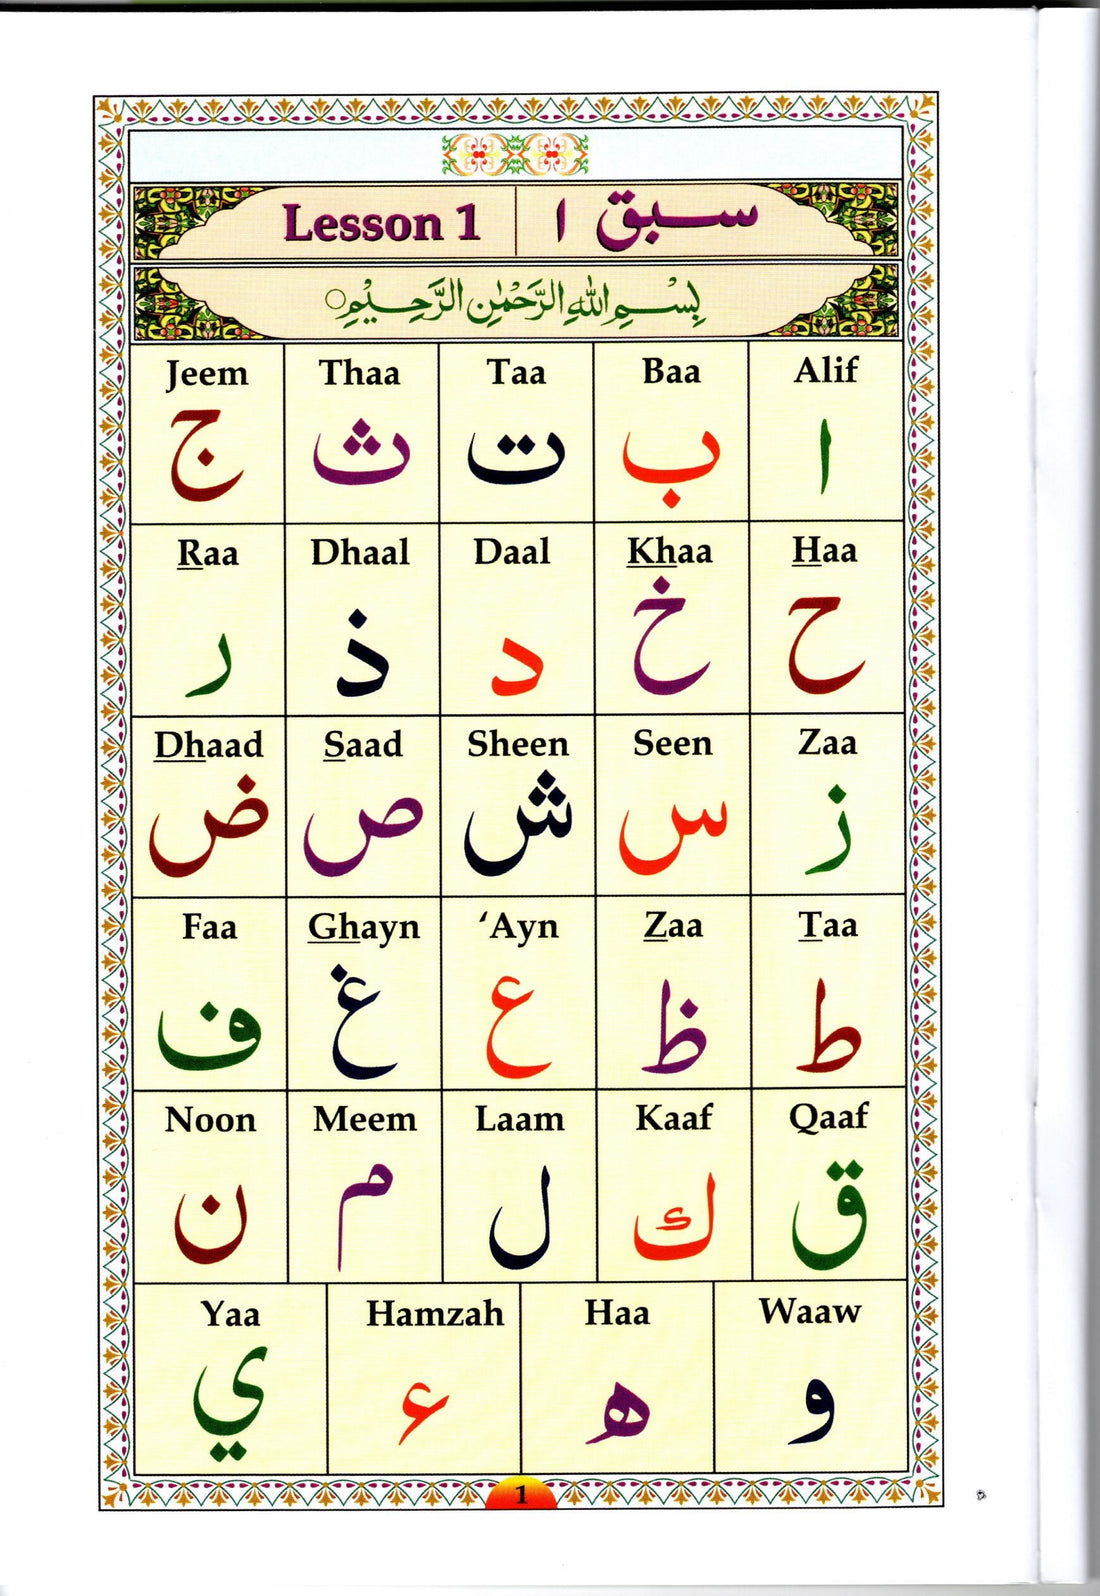 Lesson 1 | سبق ١
بِسْمِ اللهِ الرَّحْمٰنِ الرَّحِيْمِ○
Alif Baa Taa Thaa Jeem
ا ب ت ث ج
Haa Khaa Daal Dhaal Raa
ح خ د ذ ر
Zaa Seen Sheen Saad Dhaad
ز س ش ص ض
Taa Zaa ‘Ayn Ghayn Faa
ط ظ ع غ ف
Qaaf Kaaf Laam Meem Noon
ق ك ل م ن
Waaw Haa Hamzah Yaa
و ه ء ي
1